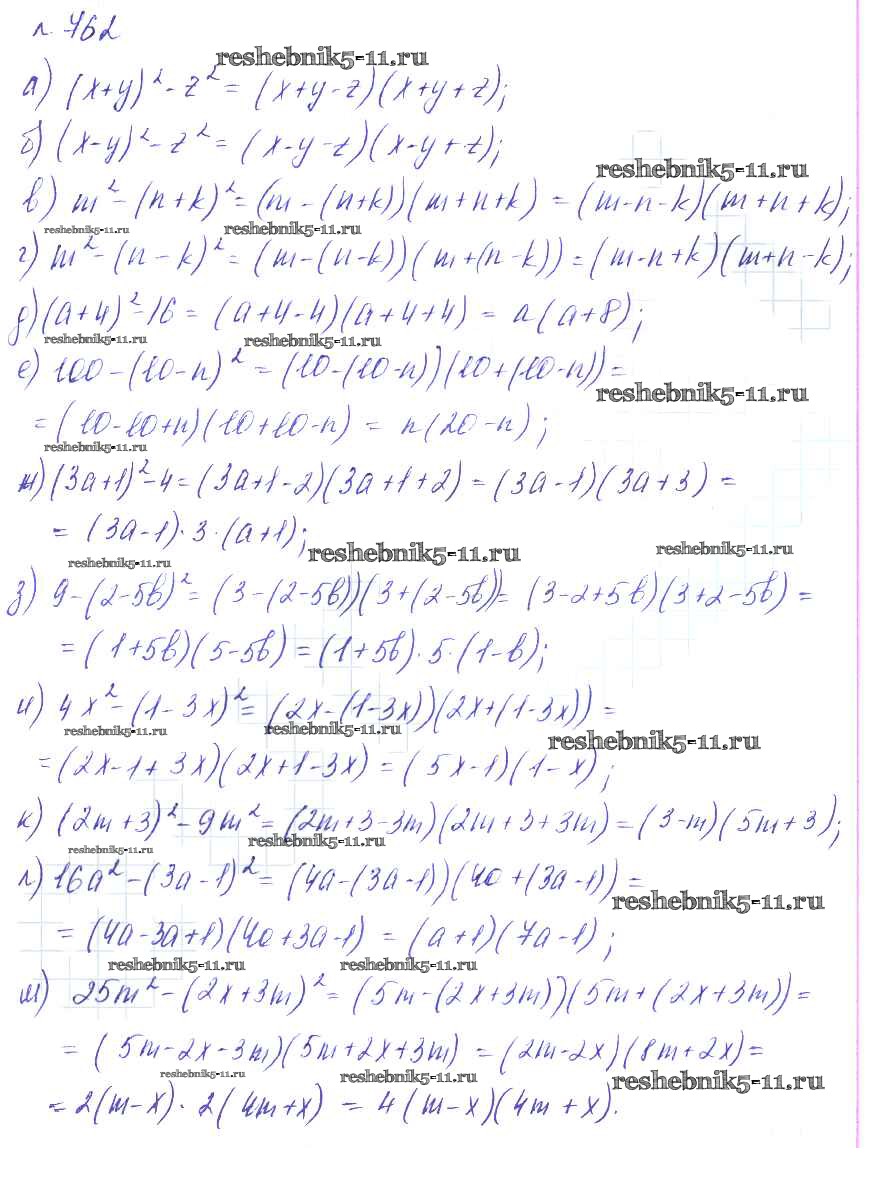 п. 762
reshebnik5-11.ru
а) (x+y)² - z² = (x+y-z)(x+y+z);
б) (x-y)² - z² = (x-y-z)(x-y+z);
reshebnik5-11.ru
в) m² - (n+k)² = (m-(n+k))(m+n+k) = (m-n-k)(m+n+k);
reshebnik5-11.ru reshebnik5-11.ru
г) m² - (n-k)² = (m-(n-k))(m+(n-k)) = (m-n+k)(m+n-k);
д) (a+4)² - 16 = (a+4-4)(a+4+4) = a(a+8);
reshebnik5-11.ru reshebnik5-11.ru
е) 100 - (10-n)² = (10-(10-n))(10+(10-n)) =
reshebnik5-11.ru
= (10-10+n)(10+10-n) = n(20-n);
reshebnik5-11.ru
ж) (3a+1)² - 4 = (3a+1-2)(3a+1+2) = (3a-1)(3a+3) =
= (3a-1)·3·(a+1);
reshebnik5-11.ru reshebnik5-11.ru reshebnik5-11.ru
з) 9 - (2-5b)² = (3-(2-5b))(3+(2-5b)) = (3-2+5b)(3+2-5b) =
= (1+5b)(5-5b) = (1+5b)·5·(1-b);
и) 4x² - (1-3x)² = (2x-(1-3x))(2x+(1-3x)) =
reshebnik5-11.ru reshebnik5-11.ru reshebnik5-11.ru
= (2x-1+3x)(2x+1-3x) = (5x-1)(1-x);
к) (2m+3)² - 9m² = (2m+3-3m)(2m+3+3m) = (3-m)(5m+3);
reshebnik5-11.ru reshebnik5-11.ru
л) 16a² - (3a-1)² = (4a-(3a-1))(4a+(3a-1)) =
reshebnik5-11.ru
= (4a-3a+1)(4a+3a-1) = (a+1)(7a-1);
reshebnik5-11.ru reshebnik5-11.ru
м) 25m² - (2x+3m)² = (5m-(2x+3m))(5m+(2x+3m)) =
= (5m-2x-3m)(5m+2x+3m) = (2m-2x)(8m+2x) =
reshebnik5-11.ru reshebnik5-11.ru reshebnik5-11.ru
= 2(m-x)·2(4m+x) = 4(m-x)(4m+x).